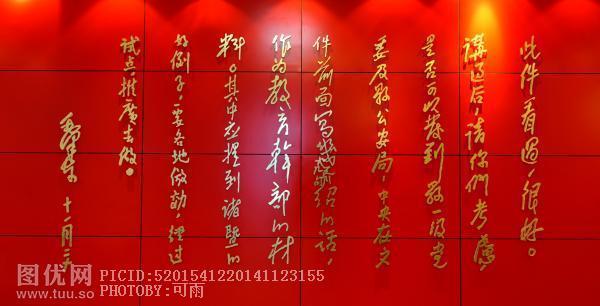 此件看過，很好。
講過后，請你們考慮，
是否可以發到縣一級党
委及縣公安局，中央在文
件前面寫幾句介紹的話，
作为教育幹部的材
料。其中应提到諸暨的
好例子，要各地仿効，經过
试点，推廣去做。
毛澤東 十一月
图优网
www.tuu.so
PICID:5201541220141123155
PHOTOBY:可雨